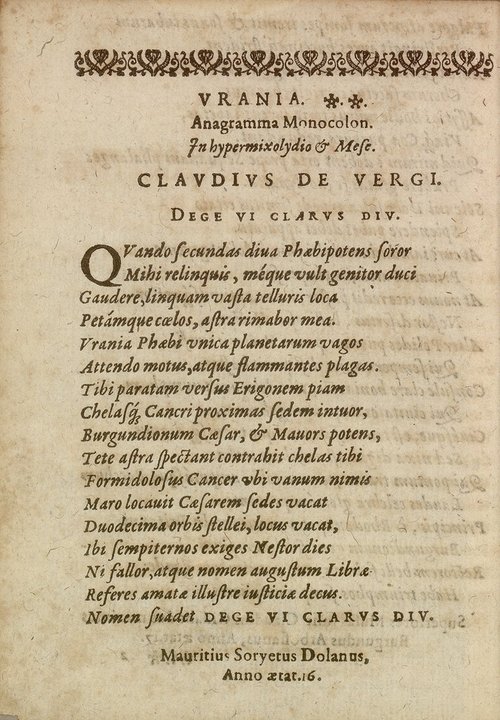 VRANIA.
Anagramma Monocolon.
In hypermixolydio & Mese.
CLAVDIVS DE VERGI.
DEGE VI CLARVS DIV.
QVando secundas diua Phæbipotens soror
Mihi relinquis, méque vult genitor duci
Gaudere, linquam vasta telluris loca
Petámque cœlos, astra rimabor mea.
Vrania Phæbi vnica planetarum vagos
Attendo motus, atque flammantes plagas.
Tibi paratam versus Erigonem piam
Chelasq́; Cancri proximas sedem intuor,
Burgundionum Cæsar, & Mauors potens,
Te te astra spectant contrahit chelas tibi
Formidolosus Cancer vbi vanum nimis
Maro locauit Cæsarem sedes vacat
Duodecima orbis stellei, locus vacat,
Ibi sempiternos exiges Nestor dies
Ni fallor, atque nomen augustum Libræ
Referes amatæ illustre iusticiæ decus.
Nomen suadet DEGE VI CLARVS DIV.
Mauritius Soryetus Dolanus,
Anno ætat. 16.